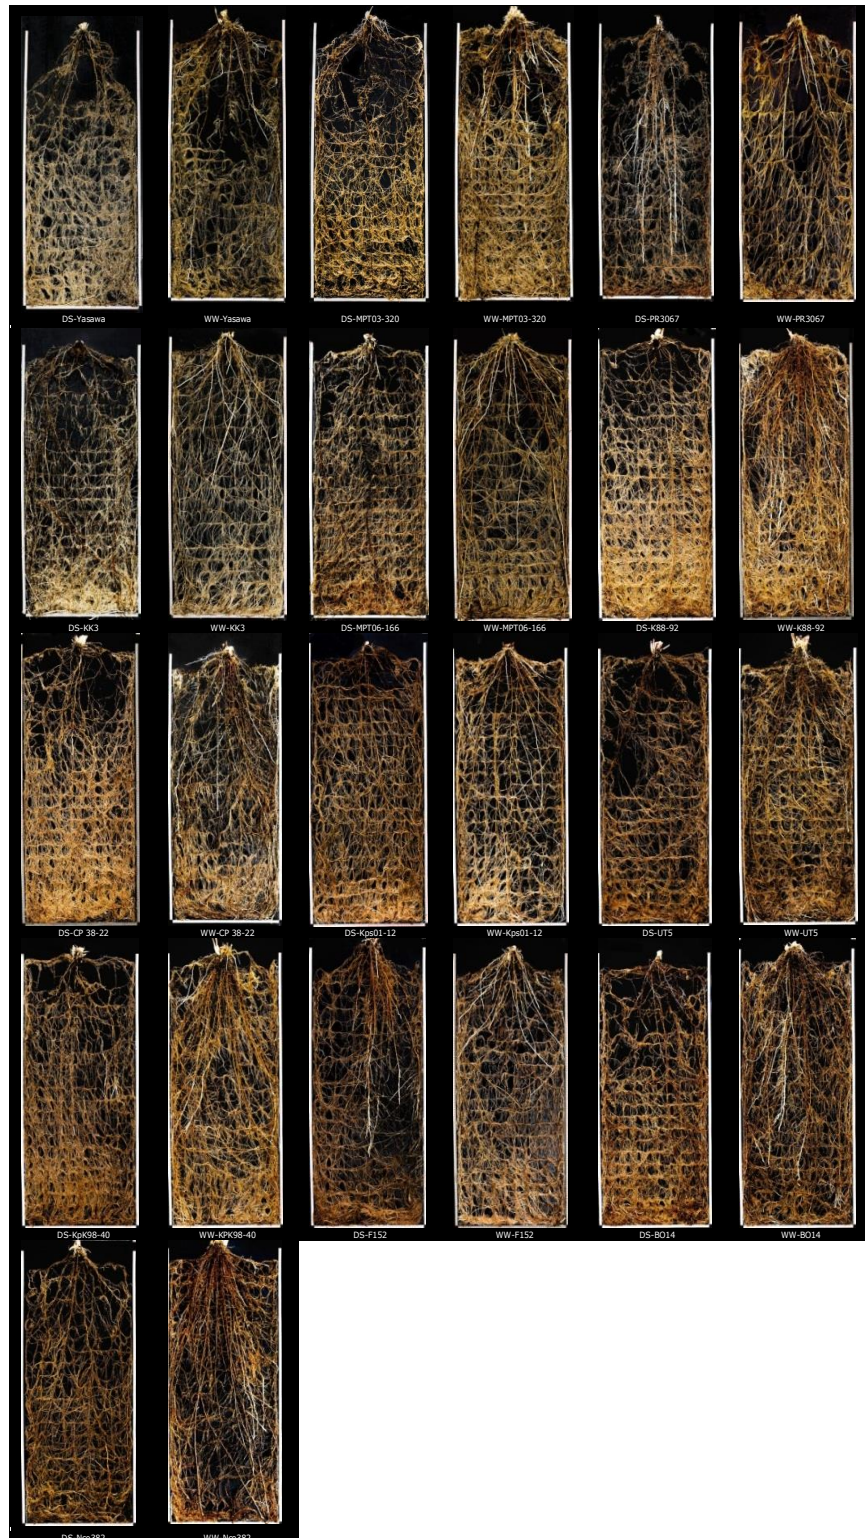 DS-Yasawa WW-Yasawa DS-MPT03-320 WW-MPT03-320 DS-PR3067 WW-PR3067
DS-KK3 WW-KK3 DS-MPT06-166 WW-MPT06-166 DS-K88-92 WW-K88-92
DS-CP 38-22 WW-CP 38-22 DS-Kps01-12 WW-Kps01-12 DS-UT5 WW-UT5
DS-KpK98-40 WW-KPK98-40 DS-F152 WW-F152 DS-BO14 WW-BO14
DS-Nco382 WW-Nco382